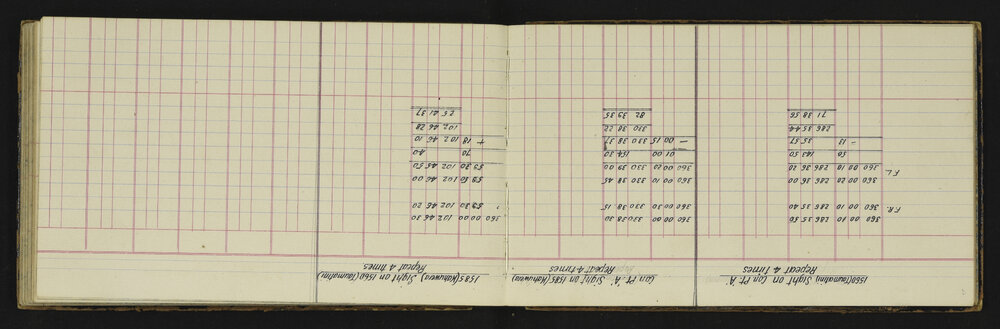 1560(Taumatini) Sight on Con Pt. 'A'
Repeat 4 Times
F.R. 360 00 10 286 35 50
360 00 10 286 35 40
F.L. 360 00 20 286 36 00
360 00 10 286 36 20
50 143 50
- 13 35 57
286 35 44
71 38 56
Con Pt. 'A' Sight on 1585 (Kahuwera)
Repeat 4 Times
360 00 00 330 38 30
360 00 30 330 38 15
360 00 10 330 38 45
360 00 20 330 39 00
01 00 154 30
- 00 15 330 38 37
330 38 22
82 39 35
1585 (Kahuwera) Sight on 1560 (Taumatini)
Repeat 4 Times
360 00 00 102 46 30
59 30 102 46 20
59 50 102 46 00
59 30 102 45 50
70 40
+ 18 102 46 10
102 46 28
25 41 37